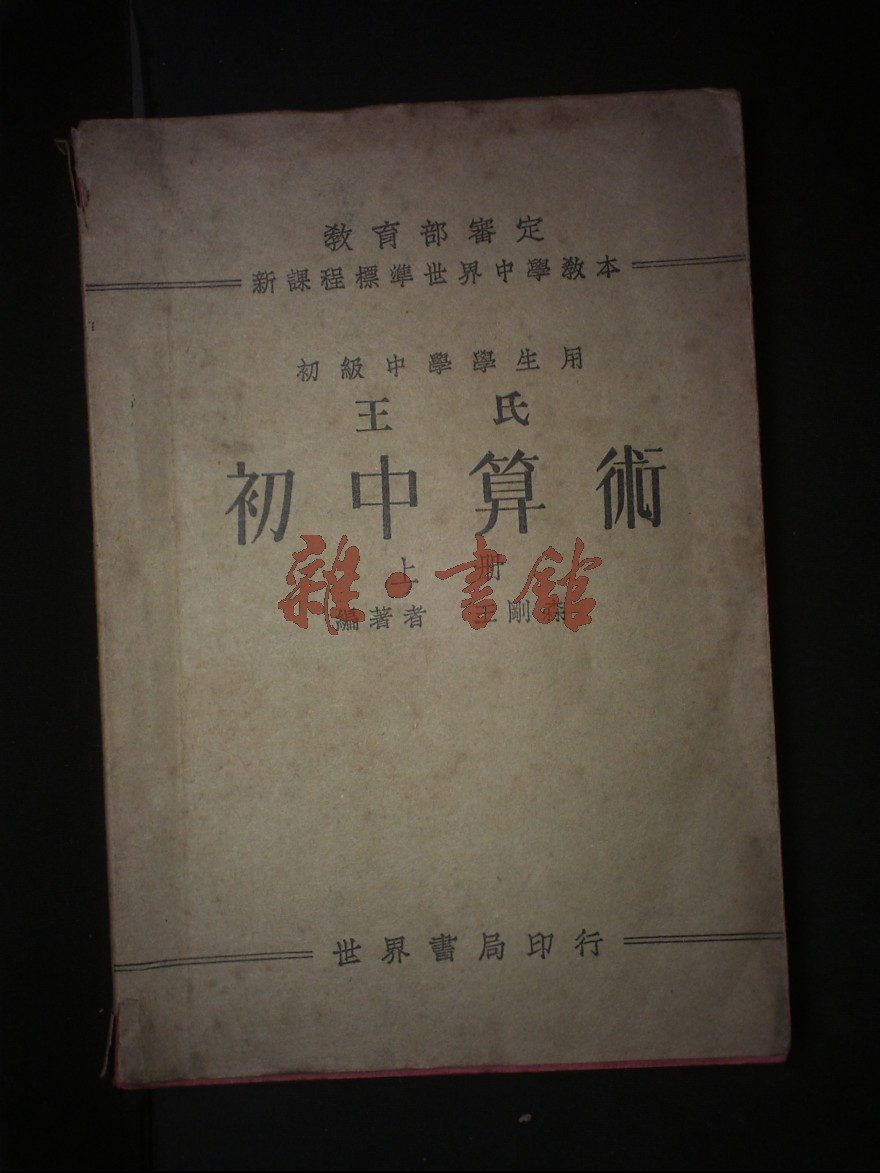 教育部審定
新課程標準世界中學教本
初級中學學生用
王氏
初中算術
上册
編著者 王剛森
雜·書館
世界書局印行